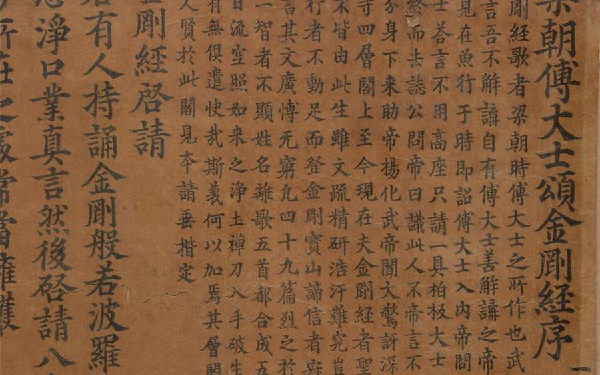 梁朝傅大士頌金剛經序
剛經歌者梁朝時傅大士之所作也武
言吾不解講自有傅大士善解講之帝
見在魚行于時即詔傅大士入內帝問
士荅言不用高座只請一具柏板大士
終而去誌公問帝曰識此人不帝言不
分身下来助帝揚化武帝聞大驚訝深
寺四層閣上至今現在夫金剛經者聖
不皆由此生雖文疏精研浩汗難究豈
行者不動足而登金剛寶山諦信者
言其文廣愽无窮九四十九篇烈之於
一智者不顯姓名離歌五首都合成五
日流空照如来之淨土禪刀入手破生
有無俱遣快哉斯義何以加焉其層閣
人賢於此閣見夲請垂楷定
金剛經啓請
若有人持誦金剛般若波羅
念淨口業真言然後啓請八
所在之處常當擁護